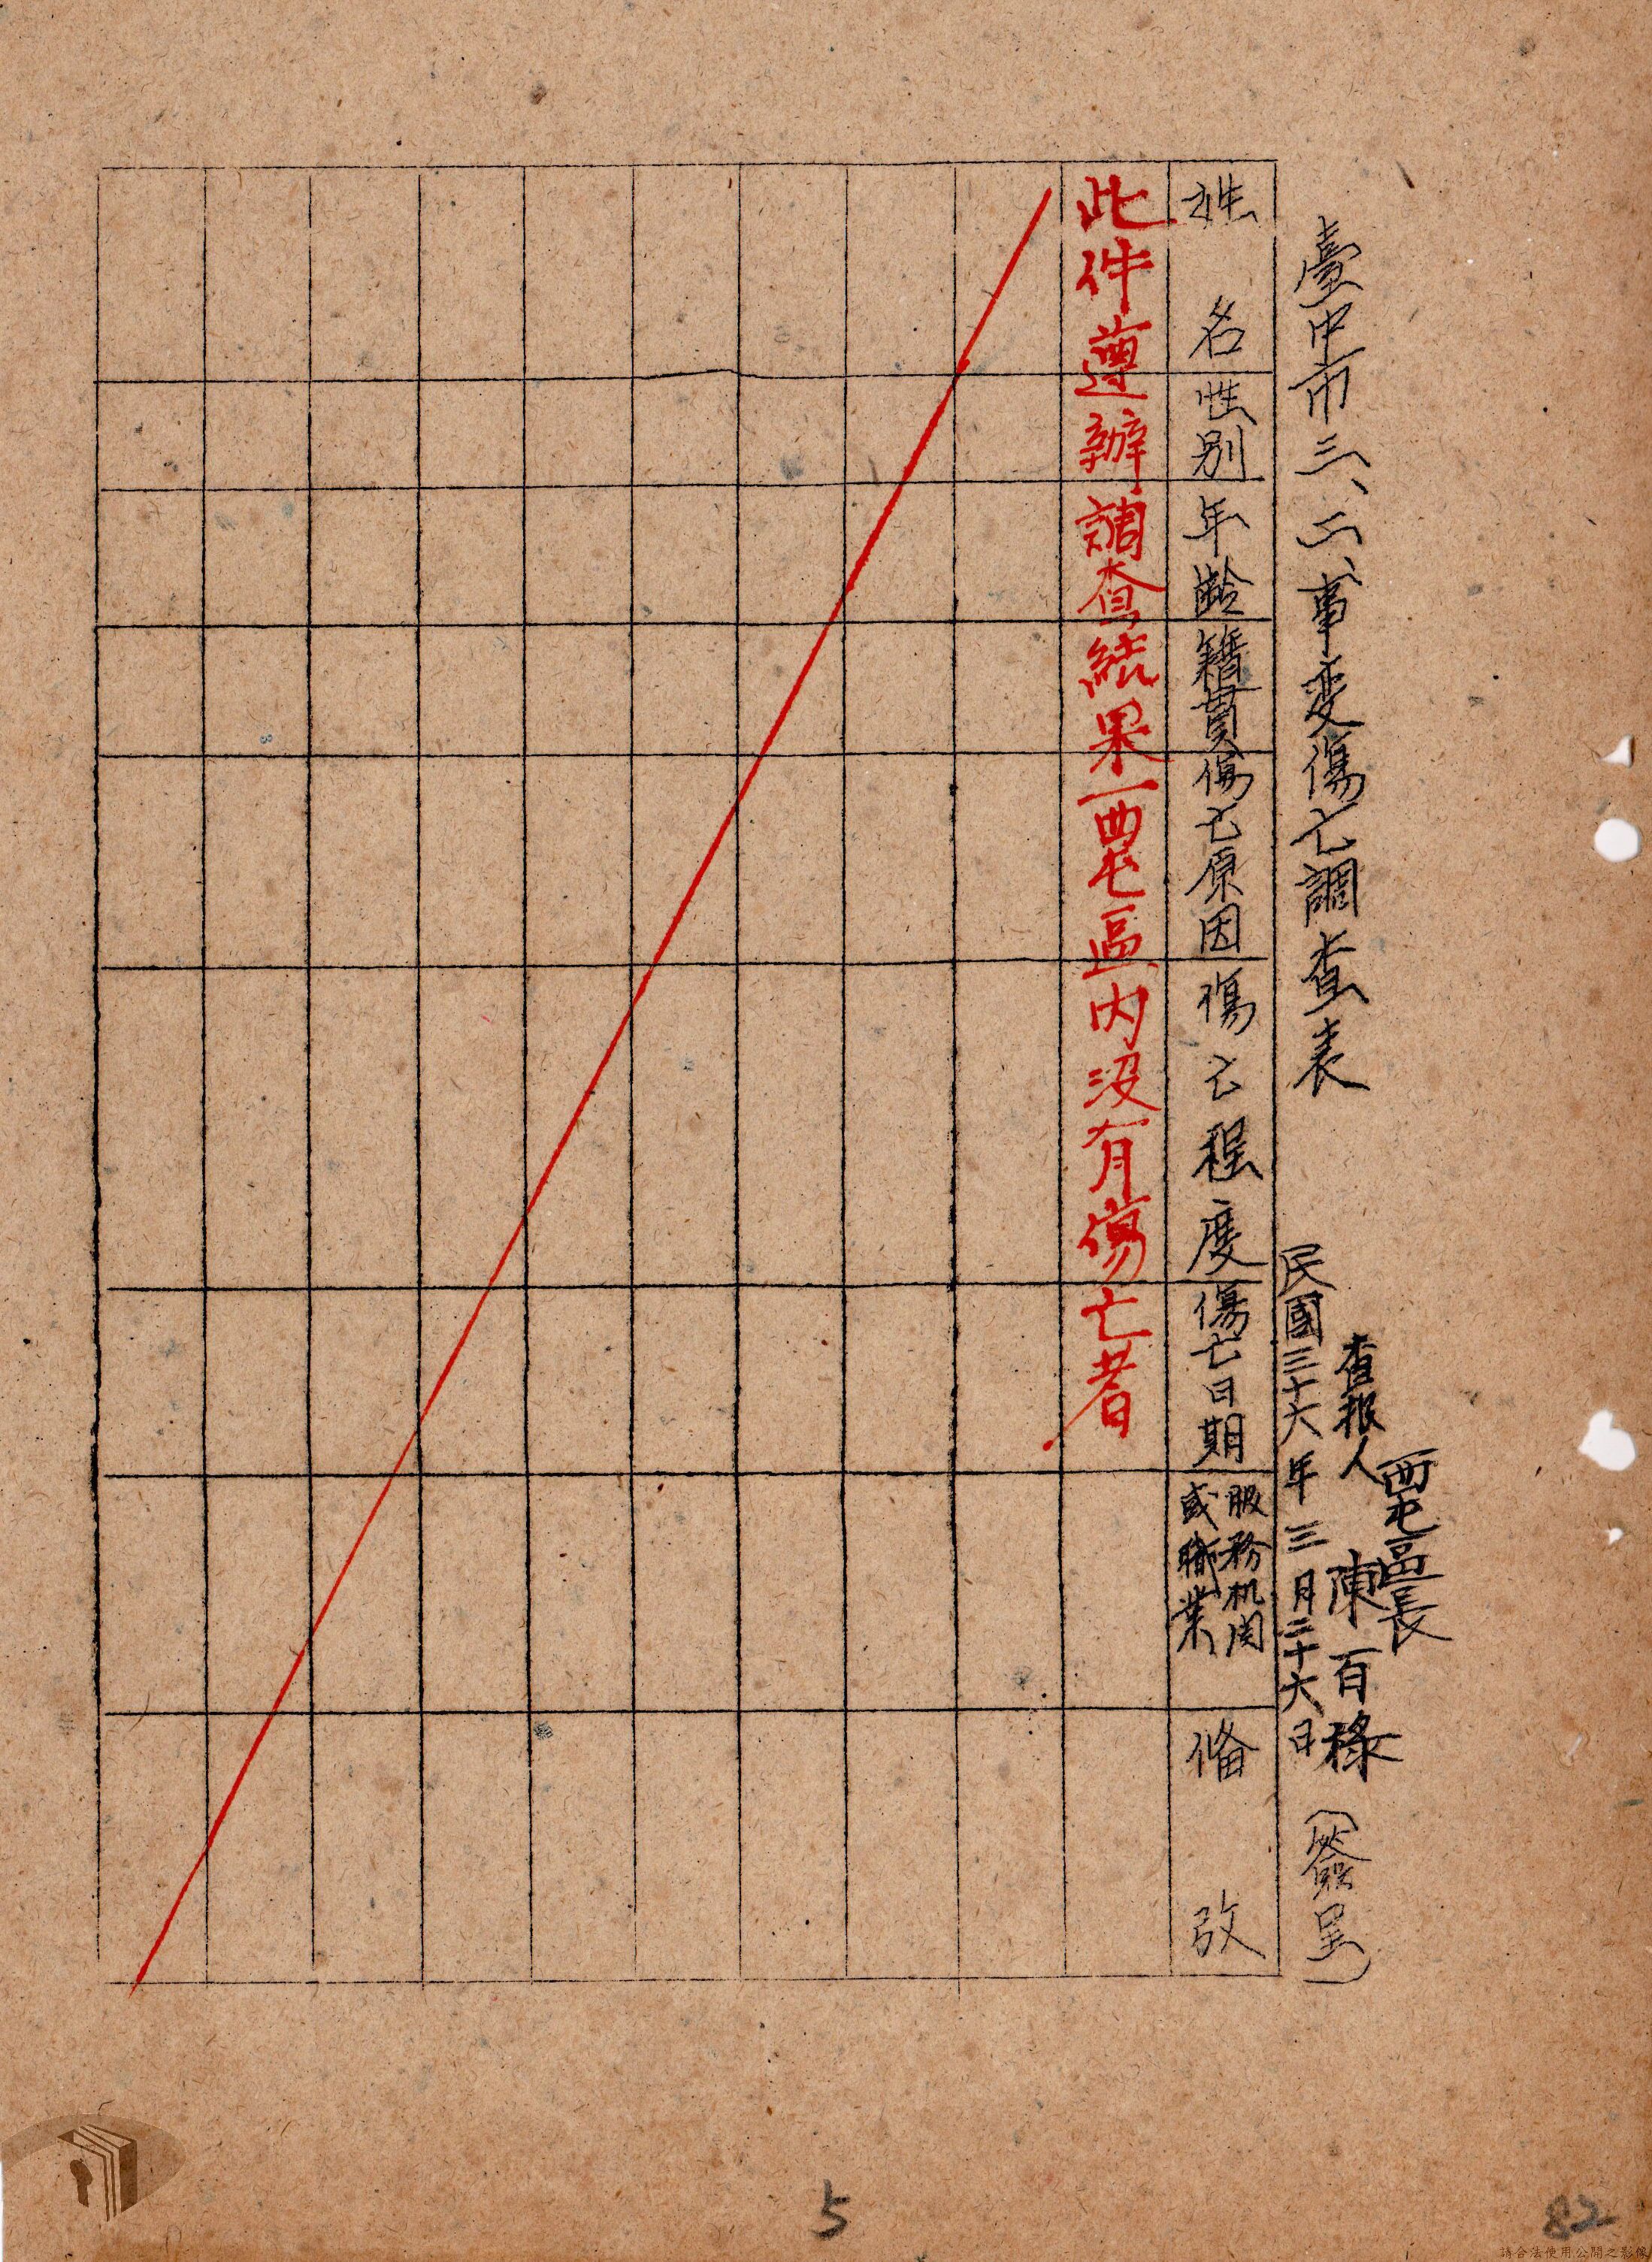 臺中市三、二、事变傷亡調查表
西屯區長
查報人 陳百祿 (簽呈)
民國三十六年三月二十六日
姓名
性別
年齡
籍貫
傷亡原因
傷亡程度
傷亡日期
服務机関
或職業
俻攷
此件遵辦調查結果西屯區內沒有傷亡者
5
82
請合法使用公開之影像